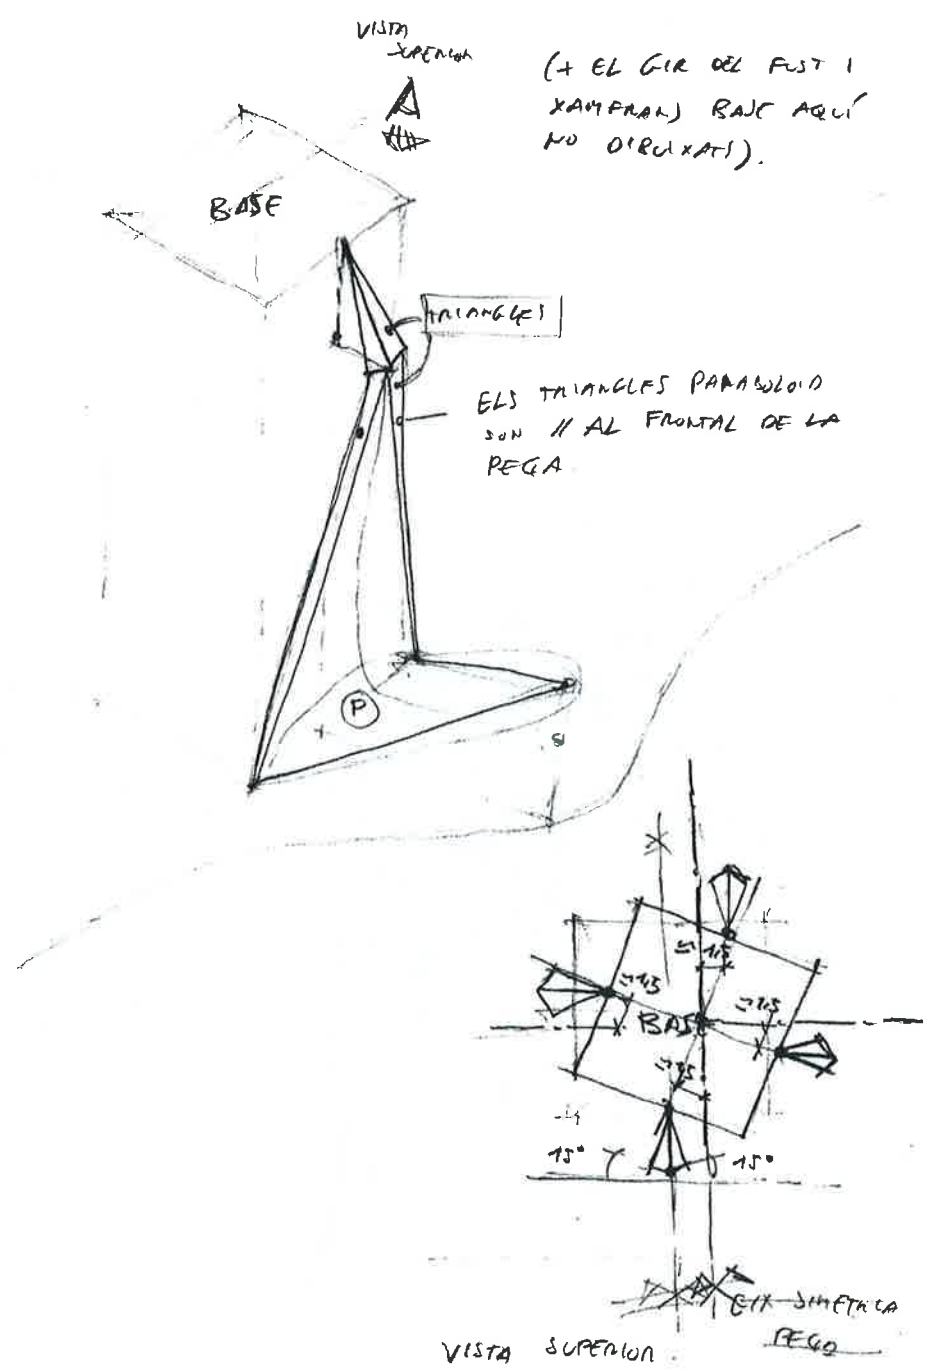 VISTA
SUPERIOR
(+ EL GIR DEL FUST I
XAMFRANS BASE AQUÍ
NO DIBUIXATS).
BASE
TRIANGLES
ELS TRIANGLES PARABOLOID
SON // AL FRONTAL DE LA
PEÇA
P
≈1,5
≈1,5
≈1,5
BASE
≈1,5
15°
15°
EIX SIMETRIA
PEÇA
VISTA SUPERIOR.